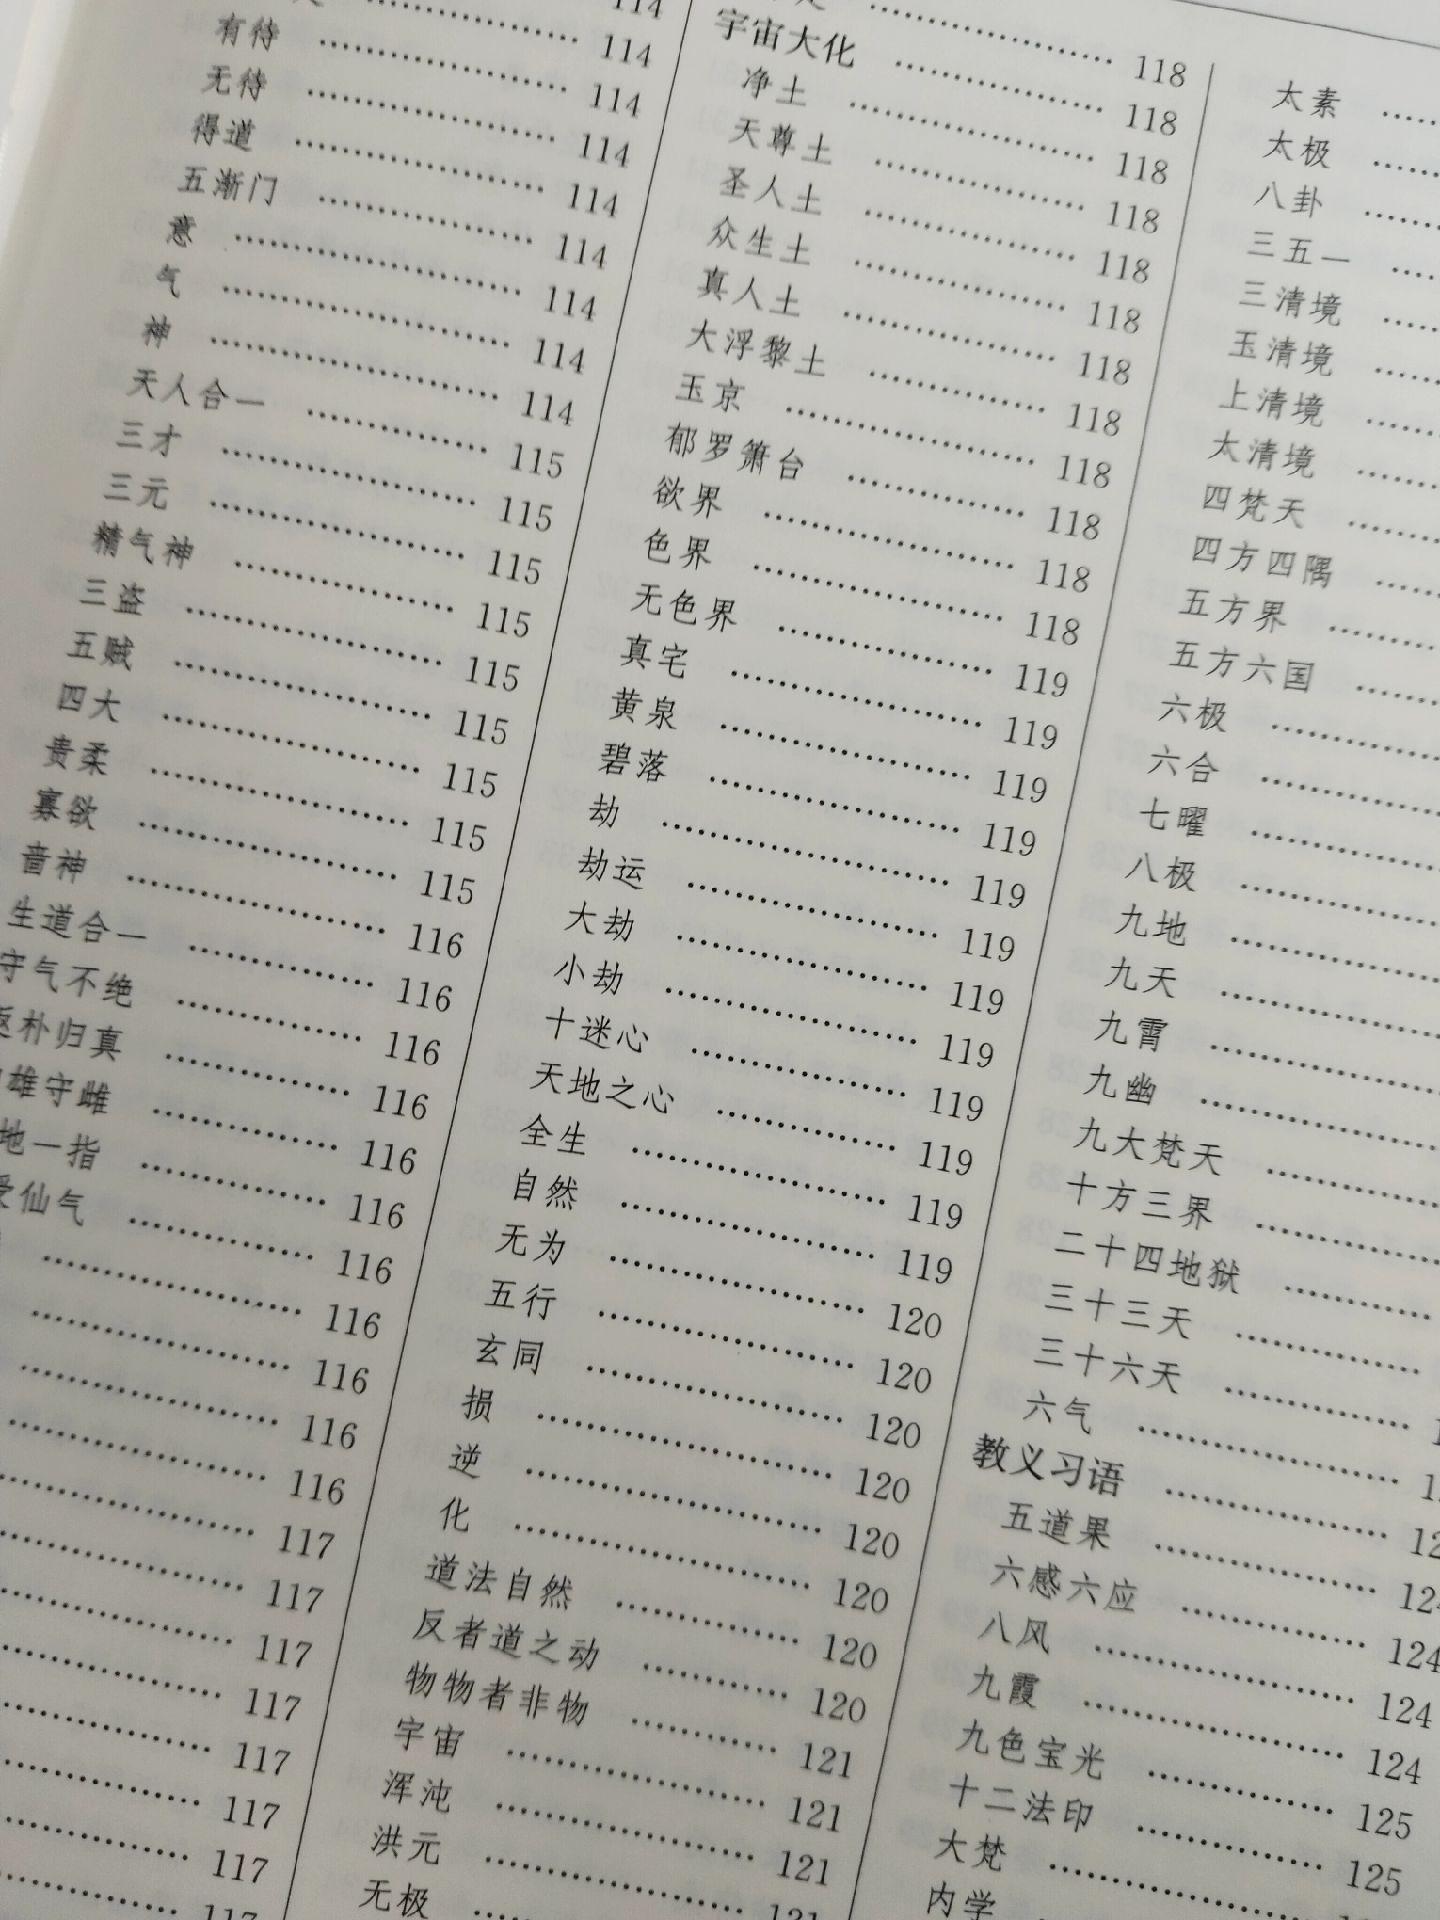 114
114
有待 …… 114
无待 …… 114
得道 …… 114
五渐门 …… 114
意 …… 114
气 …… 114
神 …… 114
天人合一 …… 115
三才 …… 115
三元 …… 115
精气神 …… 115
三盗 …… 115
五贼 …… 115
四大 …… 115
贵柔 …… 115
寡欲 …… 115
啬神 …… 116
生道合一 …… 116
守气不绝 …… 116
返朴归真 …… 116
雄守雌 …… 116
地一指 …… 116
受仙气 …… 116
…… 116
…… 116
…… 116
…… 116
…… 117
…… 117
…… 117
…… 117
…… 117
…… 117
…… 117
…… 117
…… 118
宇宙大化 …… 118
净土 …… 118
天尊土 …… 118
圣人土 …… 118
众生土 …… 118
真人土 …… 118
大浮黎土 …… 118
玉京 …… 118
郁罗箫台 …… 118
欲界 …… 118
色界 …… 118
无色界 …… 119
真宅 …… 119
黄泉 …… 119
碧落 …… 119
劫 …… 119
劫运 …… 119
大劫 …… 119
小劫 …… 119
十迷心 …… 119
天地之心 …… 119
全生 …… 119
自然 …… 119
无为 …… 120
五行 …… 120
玄同 …… 120
损 …… 120
逆 …… 120
化 …… 120
道法自然 …… 120
反者道之动 …… 120
物物者非物 …… 121
宇宙 …… 121
浑沌 …… 121
洪元 …… 121
无极 ……
太素 ……
太极 ……
八卦 ……
三五一 ……
三清境 ……
玉清境 ……
上清境 ……
太清境 ……
四梵天 ……
四方四隅 ……
五方界 ……
五方六国 ……
六极 ……
六合 ……
七曜 ……
八极 ……
九地 ……
九天 ……
九霄 ……
九幽 ……
九大梵天 ……
十方三界 ……
二十四地狱 ……
三十三天 ……
三十六天 ……
六气 ……
教义习语 ……
五道果 …… 124
六感六应 …… 124
八风 …… 124
九霞 …… 124
九色宝光 …… 125
十二法印 …… 125
大梵 ……
内学